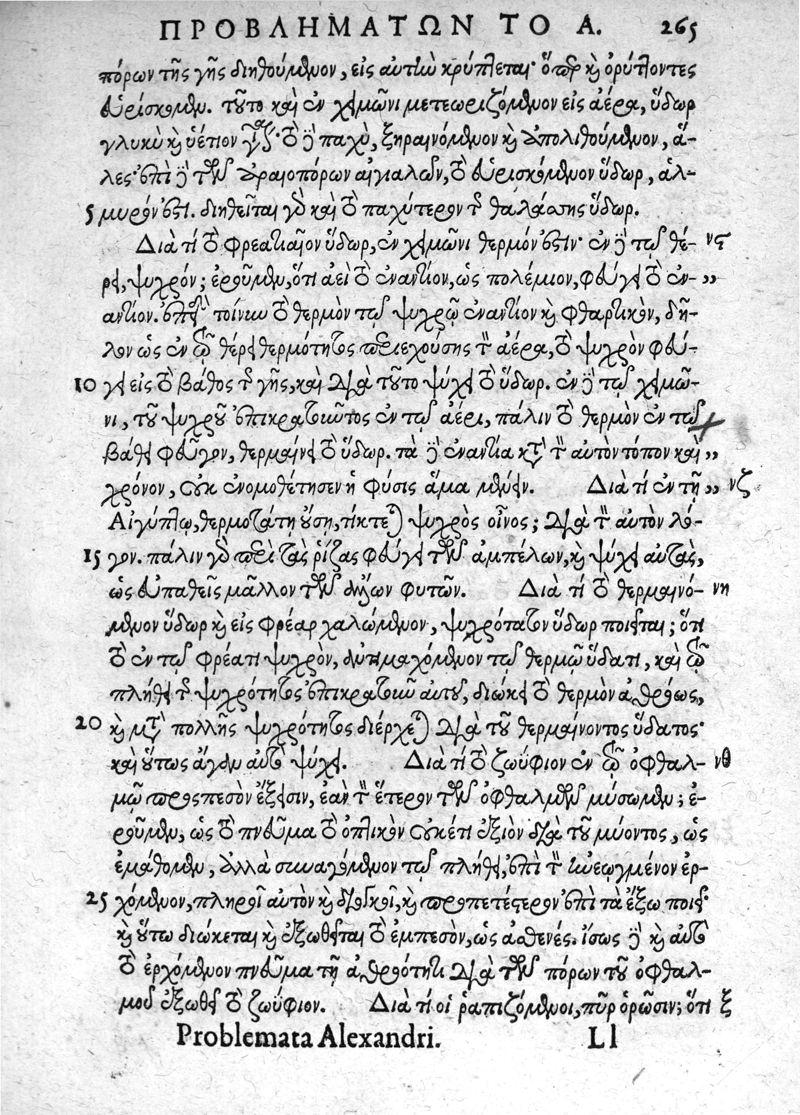 ΠΡΟΒΛΗΜΑΤΩΝ ΤΟ Α. 265
πόρων τῆς γῆς διηθούμενον, εἰς αὐτὴν κρύπτεται· ὅπερ καὶ ὀρύττοντες
εὑρίσκομεν. τοῦτο καὶ ἐν χειμῶνι μετεωριζόμενον εἰς ἀέρα, ὕδωρ
γλυκὺ καὶ ὑέτιον γίνεται· τὸ δὲ παχὺ, ξηραινόμενον καὶ ἀπολιθούμενον, ἅ-
λες· ἐπὶ δὲ τῶν ἀραιοπόρων αἰγιαλῶν, τὸ εὑρισκόμενον ὕδωρ, ἁλ-
5 μυρόν ἐστι. διηθεῖται γὰρ καὶ τὸ παχύτερον τῆς θαλάσσης ὕδωρ.
Διὰ τί τὸ φρεατιαῖον ὕδωρ, ἐν χειμῶνι θερμόν ἐστιν· ἐν δὲ τῷ θέ- νϛ
ρει, ψυχρόν; ἐροῦμεν, ὅτι ἀεὶ τὸ ἐναντίον, ὡς πολέμιον, φεύγει τὸ ἐν- „
αντίον. ἐπεὶ τοίνυν τὸ θερμὸν τῷ ψυχρῷ ἐναντίον καὶ φθαρτικὸν, δῆ-
λον ὡς ἐν τῷ θέρει θερμότητος περιεχούσης τὸν ἀέρα, τὸ ψυχρὸν φεύ-
10 γει εἰς τὸ βάθος τῆς γῆς, καὶ διὰ τοῦτο ψύχει τὸ ὕδωρ. ἐν δὲ τῷ χειμῶ-
νι, τοῦ ψυχροῦ ἐπικρατοῦντος ἐν τῷ ἀέρι, πάλιν τὸ θερμὸν ἐν τῷ
βάθει φεῦγον, θερμαίνει τὸ ὕδωρ. τὰ δὲ ἐναντία κατὰ τὸν αὐτὸν τόπον καὶ „
χρόνον, οὐκ ἐνομοθέτησεν ἡ φύσις ἅμα μένειν. Διὰ τί ἐν τῇ „ νζ
Αἰγύπτῳ, θερμοτάτῃ οὔσῃ, τίκτεται ψυχρὸς οἶνος; διὰ τὸν αὐτὸν λό-
15 γον. πάλιν γὰρ περὶ τὰς ῥίζας φεύγει τῶν ἀμπέλων, καὶ ψύχει αὐτὰς,
ὡς εὐπαθεῖς μᾶλλον τῶν ἄλλων φυτῶν. Διὰ τί τὸ θερμαινό- νη
μενον ὕδωρ καὶ εἰς φρέαρ χαλώμενον, ψυχρότατον ὕδωρ ποιεῖται; ὅτι
τὸ ἐν τῷ φρέατι ψυχρὸν, ἀντιμαχόμενον τῷ θερμῷ ὕδατι, καὶ τῷ
πλήθει τῆς ψυχρότητος ἐπικρατοῦν αὐτοῦ, διώκει τὸ θερμὸν ἀθρόως,
20 καὶ μετὰ πολλῆς ψυχρότητος διέρχεται διὰ τοῦ θερμαίνοντος ὕδατος·
καὶ οὕτως ἄγαν αὐτὸ ψύχει. Διὰ τί τὸ ζωΰφιον ἐν τῷ ὀφθαλ- νθ
μῷ προσπεσὸν ἔξεισιν, ἐὰν τὸν ἕτερον τῶν ὀφθαλμῶν μύσωμεν; ἐ-
ροῦμεν, ὡς τὸ πνεῦμα τὸ ὀπτικὸν οὐκέτι ἐξιὸν διὰ τοῦ μύοντος, ὡς
ἐμάθομεν, ἀλλὰ συναγόμενον τῷ πλήθει, ἐπὶ τὸν ἀνεῳγμένον ἐρ-
25 χόμενον, πληροῖ αὐτὸν καὶ διογκοῖ, καὶ προπετέστερον ἐπὶ τὰ ἔξω ποιεῖ·
καὶ οὕτω διώκεται καὶ ἐξωθεῖται τὸ ἐμπεσὸν, ὡς ἀσθενές. ἴσως δὲ καὶ αὐτὸ
τὸ ἐρχόμενον πνεῦμα τῇ ἀθροότητι διὰ τῶν πόρων τοῦ ὀφθαλ-
μοῦ ἐξωθεῖ τὸ ζωΰφιον. Διὰ τί οἱ ῥαπιζόμενοι, πῦρ ὁρῶσιν; ὅτι ξ
Problemata Alexandri. Ll